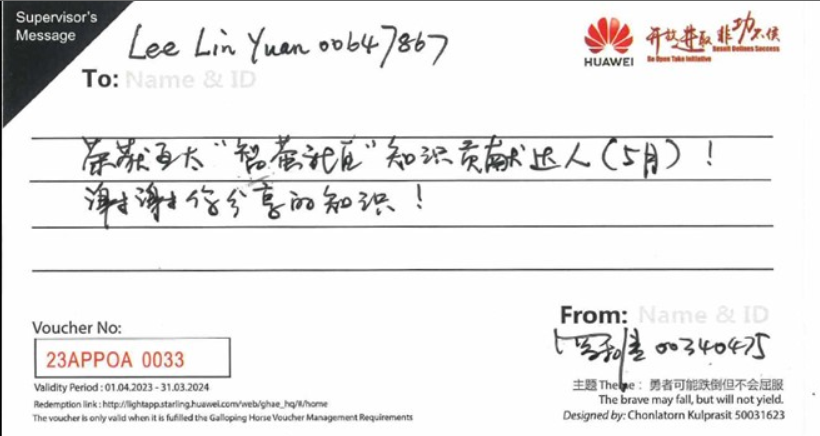 Supervisor's
Message
Lee Lin Yuan 00647867
To: Name & ID
HUAWEI
开放进取 非功不侯
Be Open Take Initiative
Result Defines Success
荣获亚太“智荟” 知识贡献达人(5月)!
谢谢你分享的知识!
Voucher No:
23APPOA 0033
Validity Period : 01.04.2023 - 31.03.2024
Redemption link : http://lightapp.starling.huawei.com/web/ghae_hq/#/home
The voucher is only valid when it is fufilled the Galloping Horse Voucher Management Requirements
From: Name & ID
00340475
主题 Theme : 勇者可能跌倒但不会屈服
The brave may fall, but will not yield.
Designed by: Chonlatorn Kulprasit 50031623